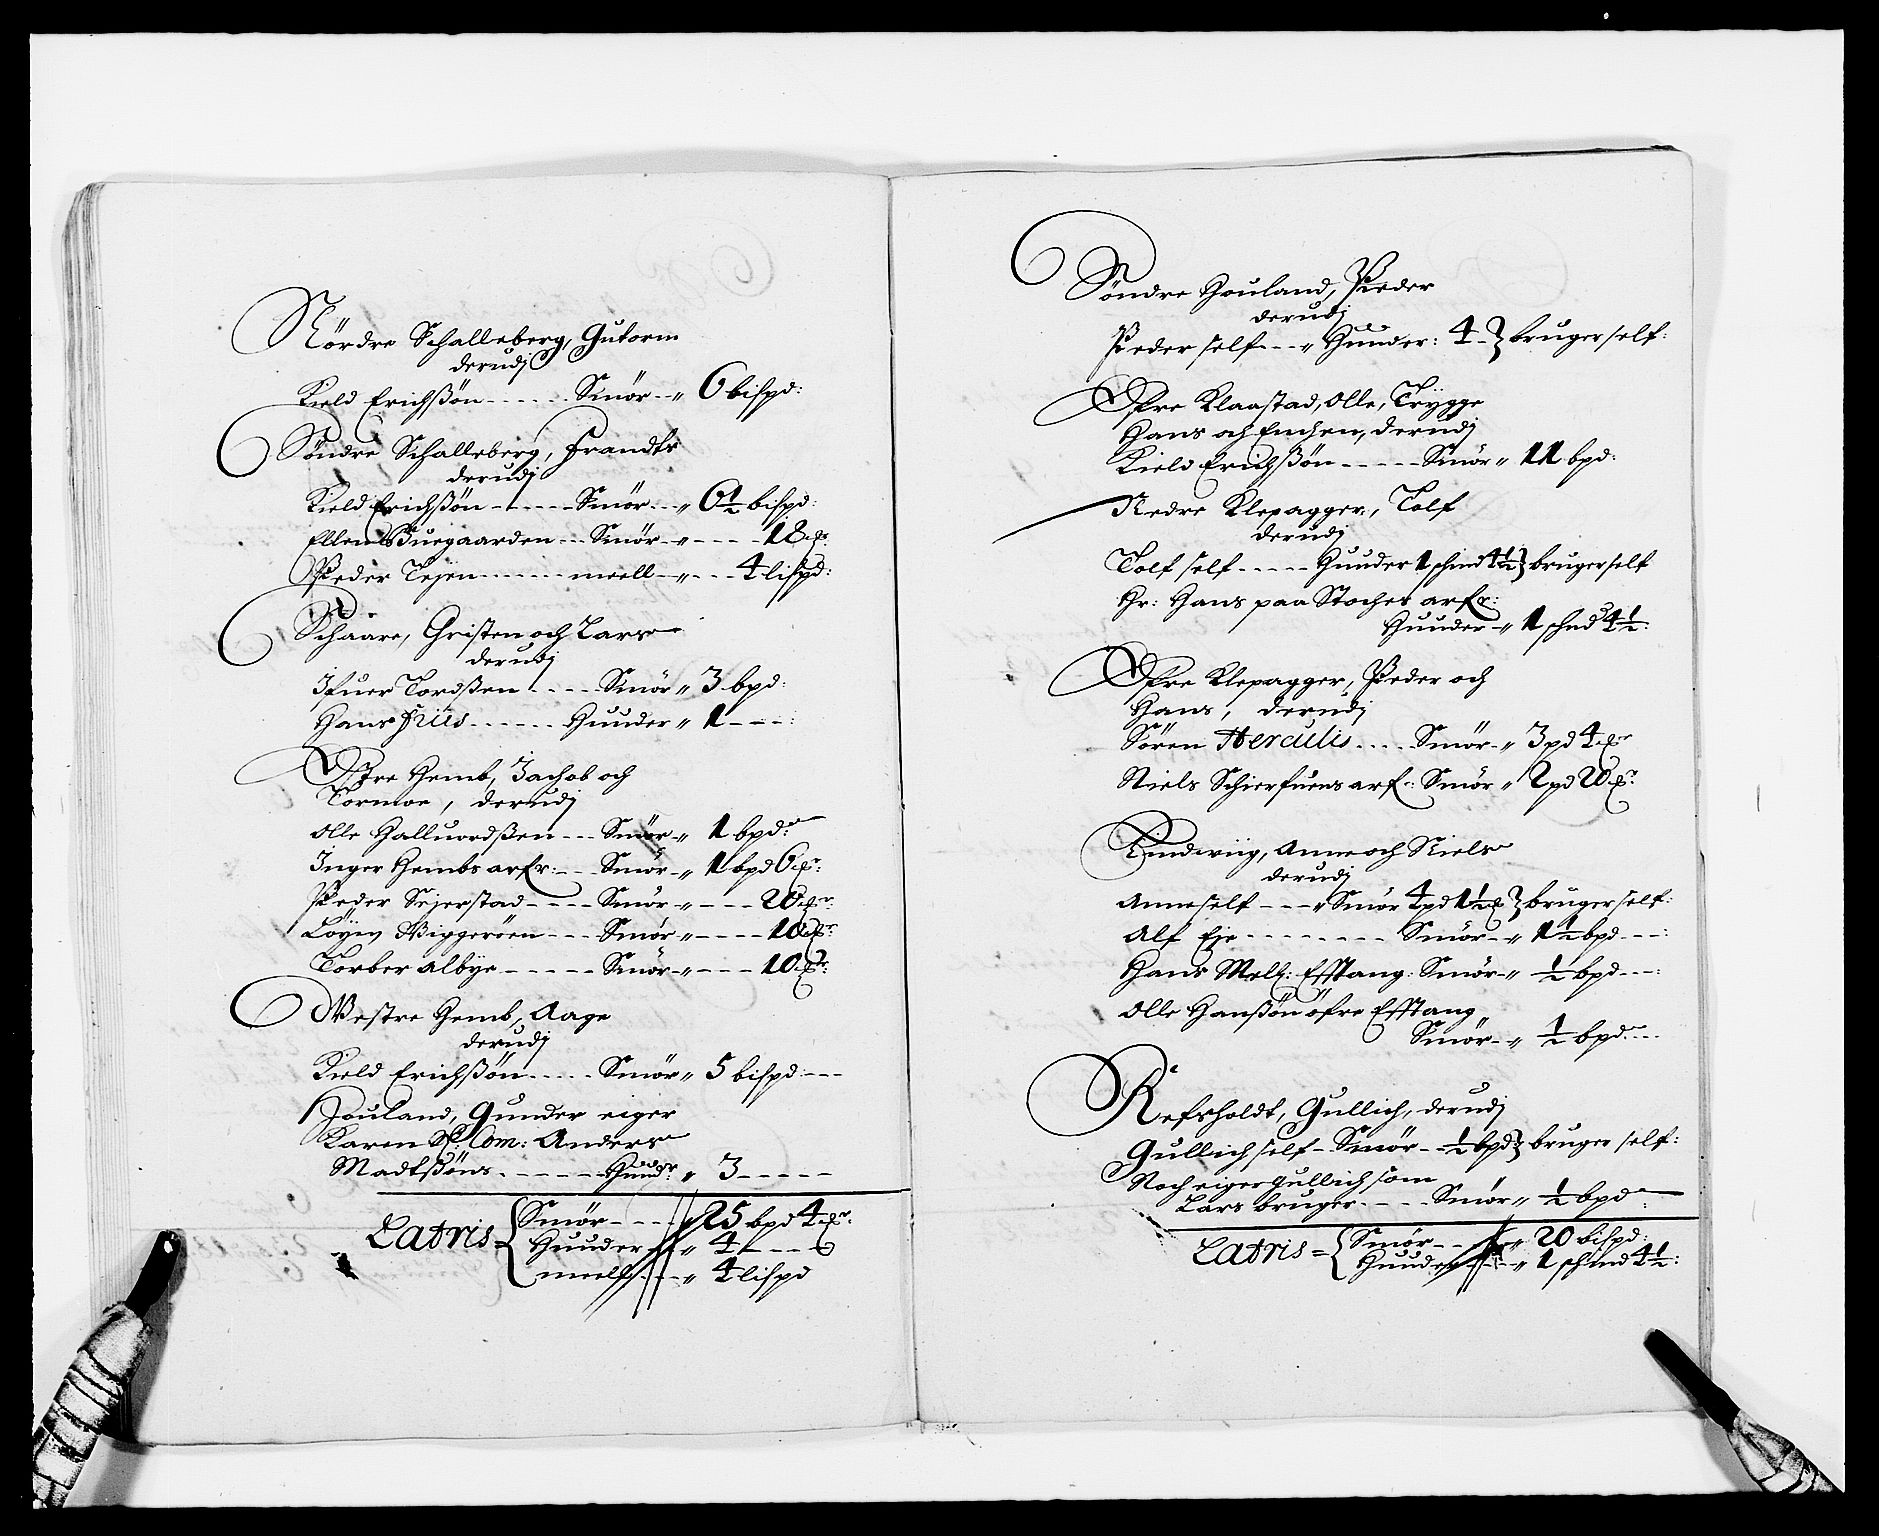 Nördre Schalleberg, Gutorm
derudj
Kield Erichßön ------ Smör -- 6 bispd:
Söndre Schalleberg, Frandts
derudj
Kield Erichßön ------ Smör -- 6½ bispd:
Ellen Buegaarden --- Smör ----- 18
Peder Tejen ------ meell ---- 4 lispd:
Schaare, Christen och Lars
derudj
Ifuer Tordßen ---- Smör 3 bpd:
Hans friis ------ Huuder 1 ----
Östre Hemb, Jachob och
Tormoe, derudj
Olle Halluordßen --- Smör 1 bpd:
Inger Hembs arfr: --- Smör 1 bpd 6
Peder Sejerstad ---- Smör ---- 20
Löyen Wiggeröen --- Smör ---- 10
Torber albye ----- Smör ---- 10
Westre Hemb, Aage
derudj
Kield Erichßön ----- Smör 5 bispd: ---
Jouland, Gunder eiger
Karen Sl: Com: Anders
Madtßöns ------ Huudr: 3 -----
Latris = Smör ---- 25 bpd 4
Huuder 4 ----
meell --- 4 lispd
Söndre Houland, Peder
derudj
Peder self --- Huuder: 4 - bruger self:
Öfre Klaastad, Olle, Trygge
Hans och Enchen, derudj
Kield Erichßön ----- Smör 11 bpd:
Nedre Klepagger, Tolf
derudj
Tolf self ----- Huuder 1 schind 4½ bruger self
Hr: Hans paa Stochet arfr:
Huuder - 1 schind 4½:
Öfre Klepagger, Peder och
Hans, derudj
Sören Herculis ---- Smör - 3 pd 4
Niels Schierfuens arfr: Smör 2 pd 20
Lindwiig, Anne och Niels
derudj
Anne self --- Smör 4 pd 1½ bruger self:
Alf Eje -------- Smör - 1½ bpd ---:
Hans Mell: Efftang: Smör - ½ bpd ---:
Olle Hanßön öfre Efftang
Smör - ½ bpd ---
Refsholdt, Gullich, derudj
Gullich self - Smör -- ½ bpd bruger self:
Noch eiger gullich som
Lars bruger ---- Smör ½ bpd
Latris = Smör --- 20 bispd:
Huuder --- 1 schind 4½: